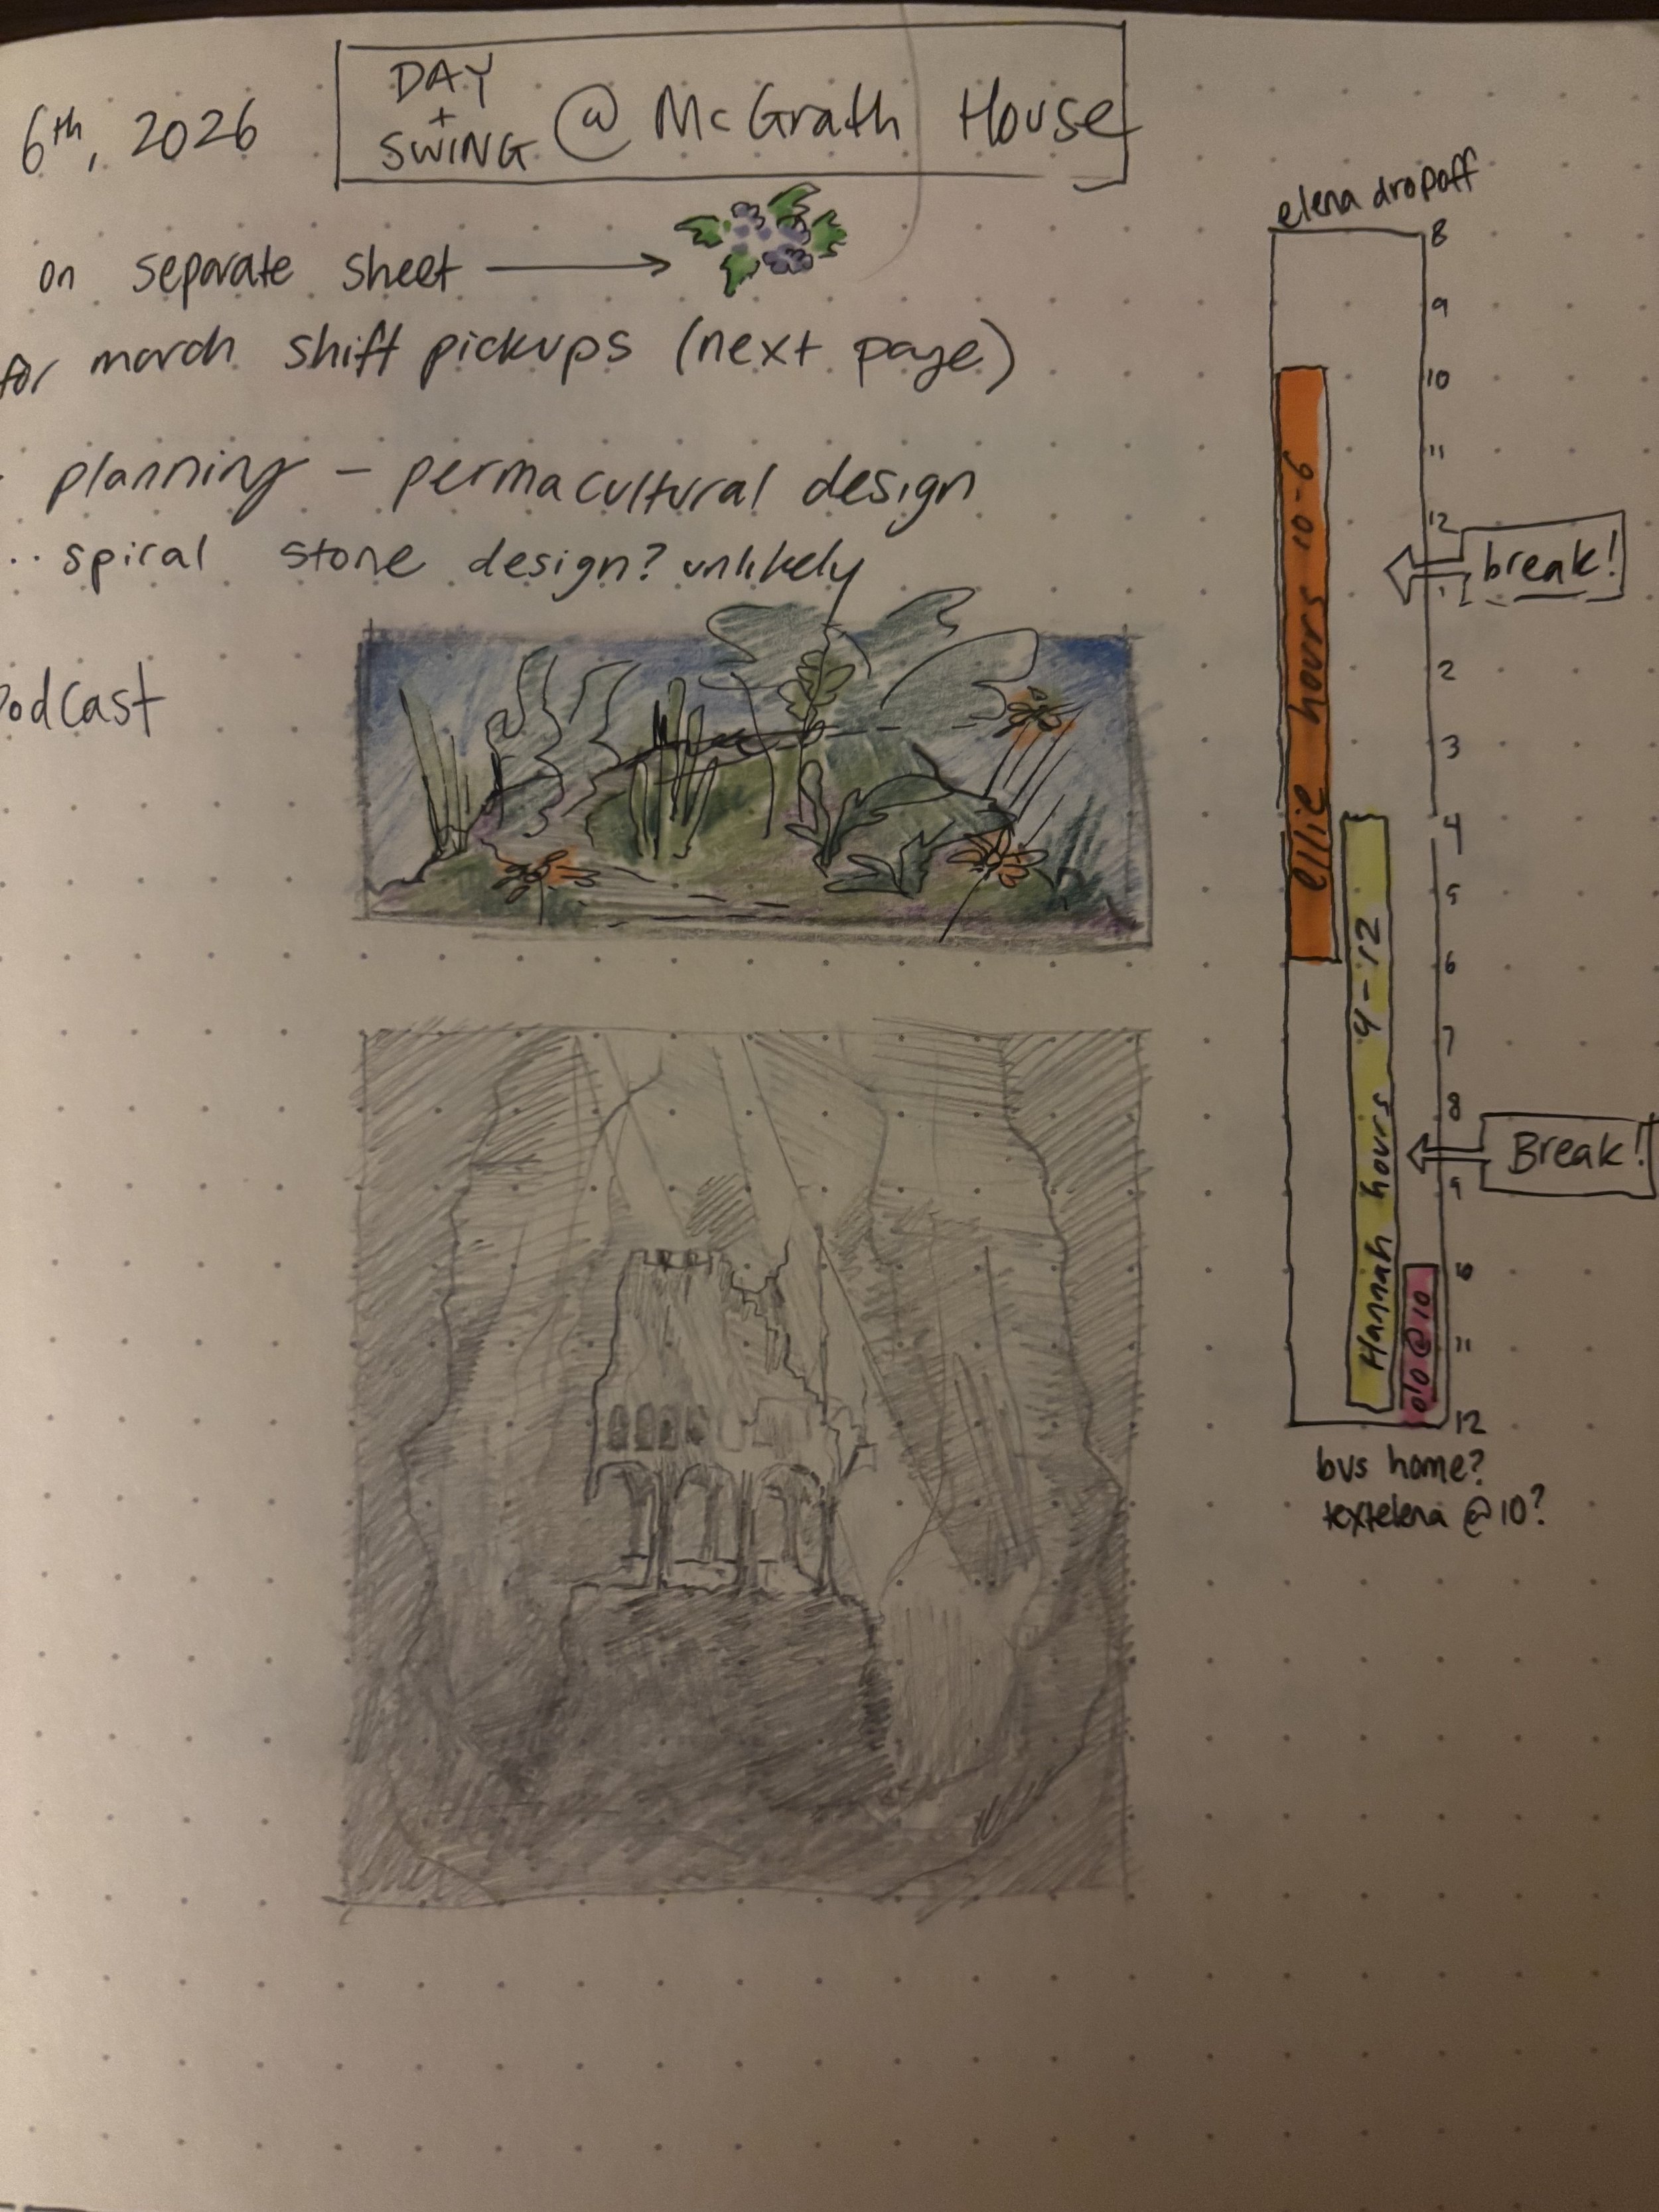 6th, 2026
DAY
+
SWING @ McGrath House
on separate sheet
for march shift pickups (next page)
planning - permacultural design
.. spiral stone design? unlikely
Podcast
elena dropoff
8
9
10
11
12
break!
1
2
3
4
5
6
7
8
Break!
9
10
11
12
ellie hours 10-6
Hannah hours 4-12
olo @ 10
bus home?
text elena @ 10?